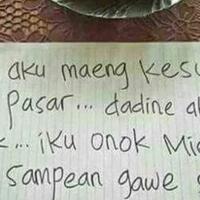 aku maeng kesu
Pasar... dadine a
... iku onok Mi
Sampean gawe